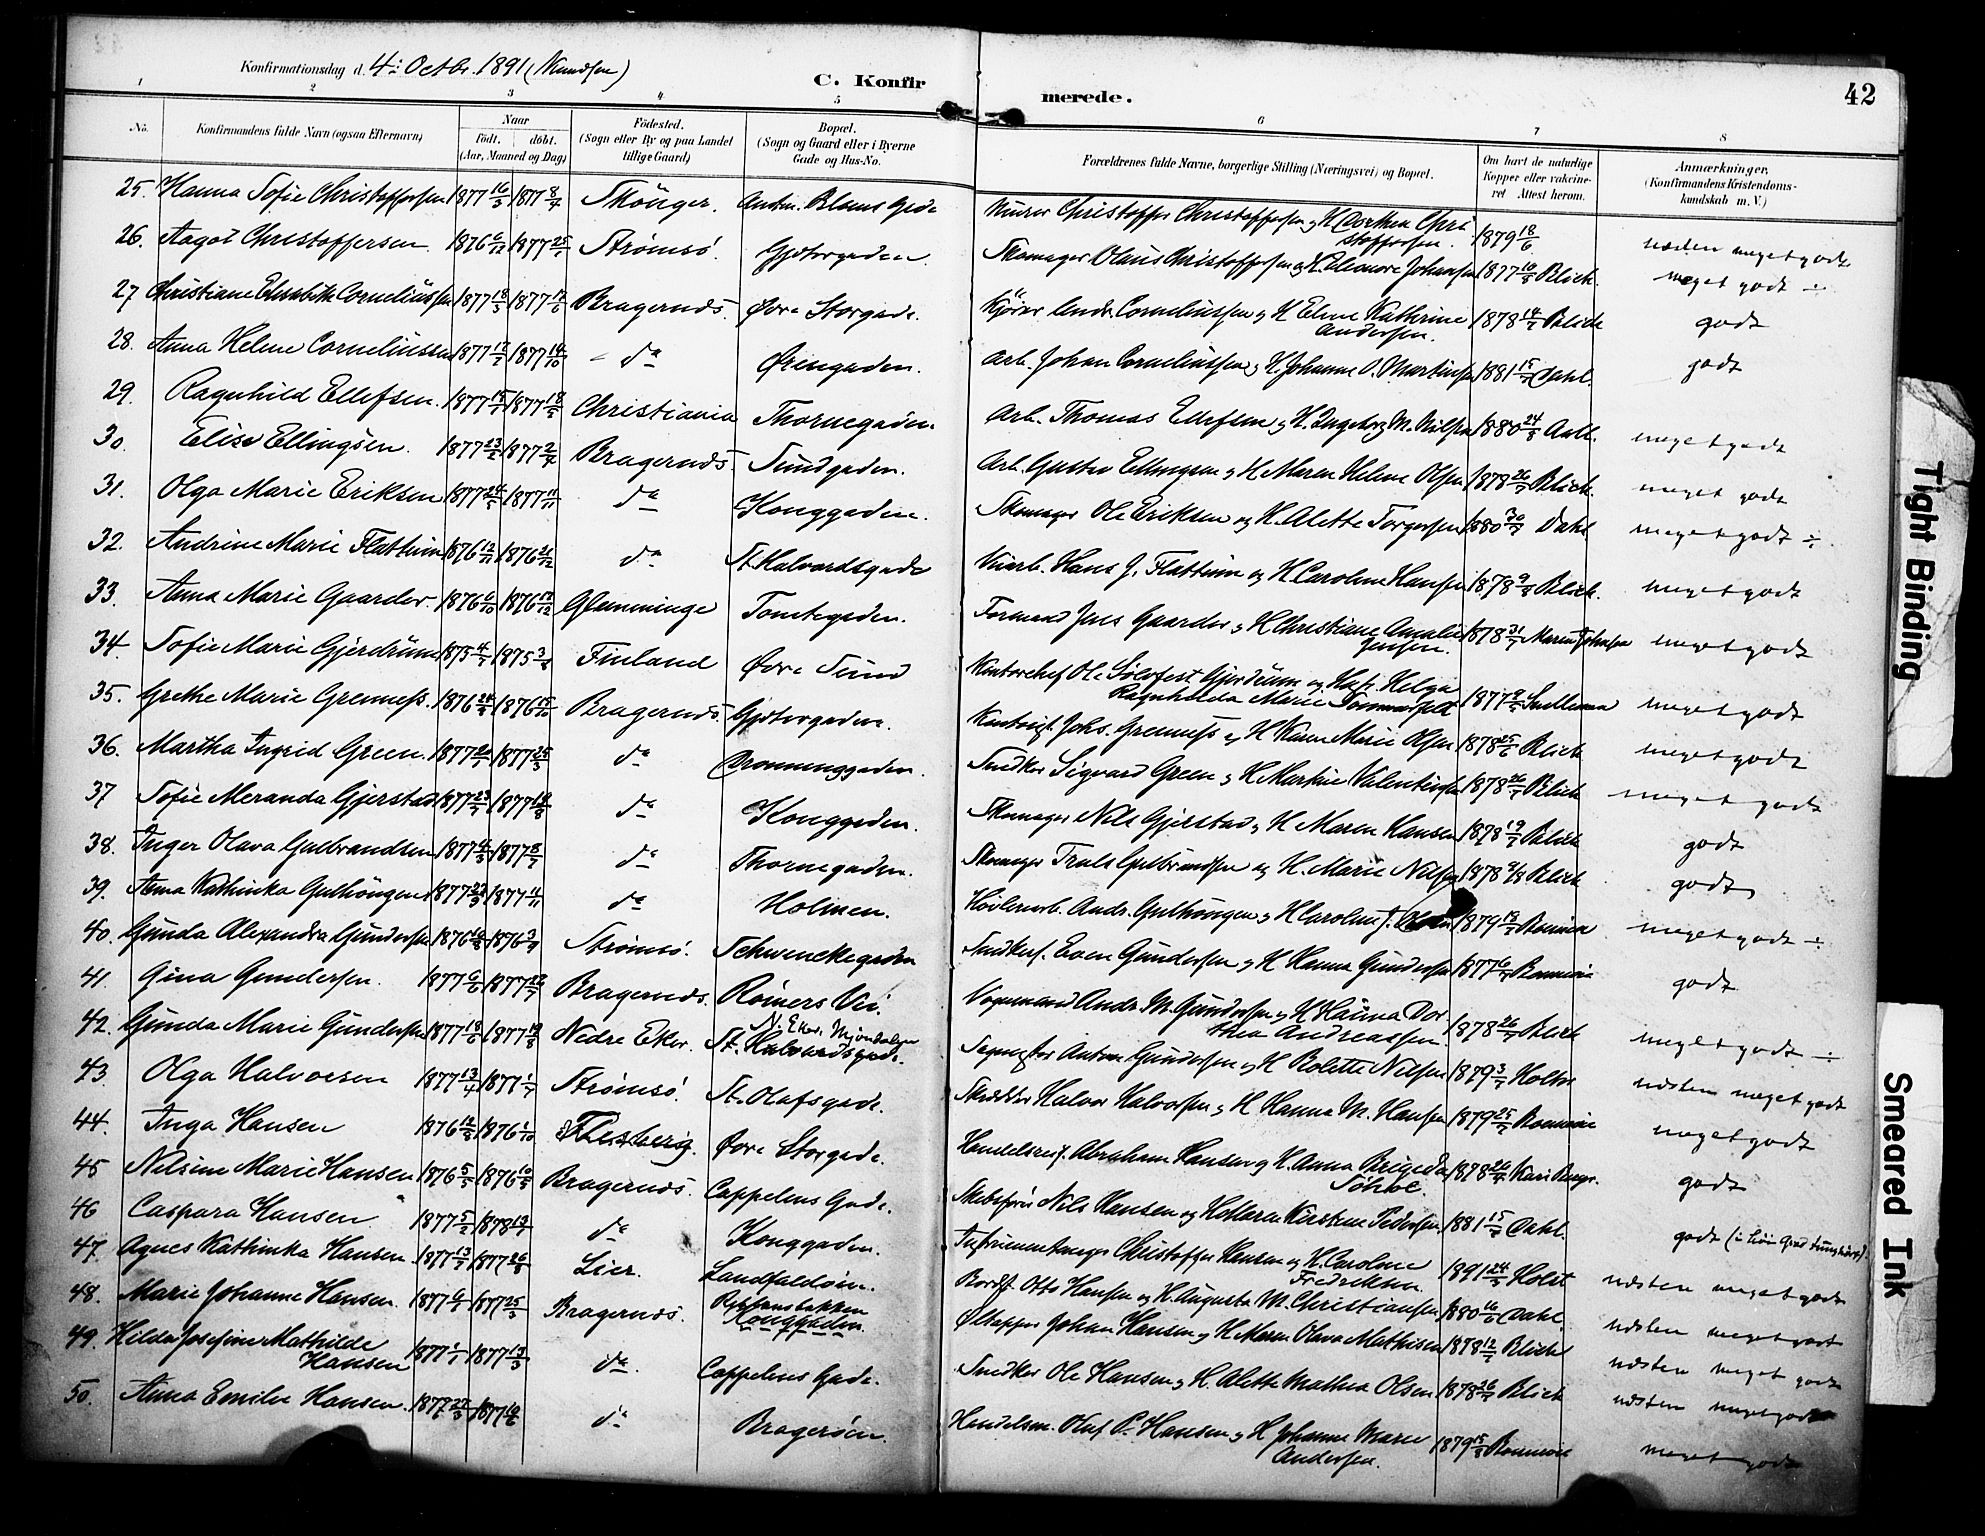 Konfirmationsdag d. 4: Octbr. 1891 (Knudsen)
C. Konfirmerede.
42
1 2 3 4 5 6 7 8
No.
Konfirmandens fulde Navn (ogsaa Efternavn)
Naar
Födt. döbt.
(Aar, Maaned og Dag)
Födested.
(Sogn eller By og paa Landet
tillige Gaard)
Bopæl.
(Sogn og Gaard eller i Byerne
Gade og Hus-No.
Forældrenes fulde Navne, borgerlige Stilling (Næringsvei) og Bopæl.
Om havt de naturlige
Kopper eller vakcine-
ret Attest herom.
Anmærkninger.
(Konfirmandens Kristendoms-
kundskab m. V.)
25. Hanna Sofie Christoffersen 1877 16/3 1877 8/4 Skouger. Anton Blums Gade Murer Christoffer Christoffersen og H. Dorthea Christoffersen. 1879 18/6 næsten meget godt
26. Aagot Christoffersen 1876 6/12 1877 25/1 Strømsö Gjetergaden. Skomager Olaus Christoffersen og H. Eleonore Johansen 1877 10/8 Blich. meget godt ÷
27 Christiane Elisabeth Corneliussen 1877 18/3 1877 17/6 Bragernæs. Øvre Storgade. Kjörer Andr. Corneliussen og H. Eline Kathrine Andersen. 1878 14/7 Blich godt
28. Anna Helene Corneliussen 1877 17/7 1877 14/10 da Øringaden. Arb. Johan Corneliussen og H. Johanne O. Martinsen 1881 15/7 Dahl. godt
29. Ragnhild Ellefsen. 1877 15/7 1877 18/8 Christiania Thornegaden. Arb. Thomas Ellefsen og H. Ingeborg M. Nilsen 1880 24/8 meget godt
30. Elise Ellingsen. 1877 23/2 1877 2/4 Bragernæs. Sundgaden. Arb. Gustav Ellingsen og H. Maren Helene Olsen 1878 26/7 Blich. meget godt
31. Olga Marie Eriksen 1877 24/8 1877 11/11 da Konggaden. Skomager Ole Eriksen og H. Alette Torgersen 1880 30/7 Dahl meget godt ÷
32. Andrine Marie Flattum 1876 12/11 1876 21/12 da St. Halvardsgade Hans J. Flattum og H. Caroline Hansen 1878 9/8 Blich. meget godt
33. Anna Marie Gaarder. 1876 6/10 1876 17/12 Glemminge Tomtegaden. Formand Jens Gaarder og H. Christiane Amalie Jensen. 1878 31/7 Marie Johnsen meget godt
34. Sofie Marie Gjerdrum 1875 4/7 1875 3/8 Finland Øvre Sund Kontorchef Ole Sölvfest Gjerdrum og Hustr. Helga Ragnhilda Marie Sommerfelt 1877 9/5 Snellman meget godt
35. Grethe Marie Grenness. 1876 24/8 1876 15/10 Bragernæs. Gjetergaden. Johs. Grenness og H. Karen Marie Olsen 1878 25/6 Blich meget godt
36. Martha Ingrid Green. 1877 1877 25/3 da Dronninggaden. Snedker Sigvard Green og H. Martine Valentinsen 1878 26/7 Blich meget godt
37 Sofie Meranda Gjerstad 1877 23/7 1877 19/8 da Konggaden. Skomager Nils Gjerstad og H. Maren Hansen 1878 19/7 Blich godt
38. Inger Olava Gulbrandsen 1877 1877 8/7 da Thornegaden. Skomager Truls Gulbrandsen og H. Marie Nilsen 1878 9/8 Blich godt
39. Anna Kathinka Gulhougen 1877 23/9 1877 11/11 da Holmen. Høvlerarb. Andr. Gulhougen og H. Caroline J. Olsen 1879 18/7 Boumien meget godt ÷
40. Gunda Alexandra Gundersen 1876 16/8 1876 3/9 Strømsö. Schwenckegaden Snedkers. Even Gundersen og H. Hanna Gundersen 1877 godt
41. Gina Gundersen. 1877 6/6 1877 22/7 Bragernæs. Römers Vei. Vognmand Andr. M. Gundersen og H. Hanna Dorthea Andreassen. 1878 26/7 Blich meget godt ÷
42. Gunda Marie Gundersen 1877 18/6 1877 19/8 Nedre Eker. N. Eker. Mjöndalen St. Halvardsgade. Anton Gundersen og H. Bolette Nilsen 1879 3/7 Holtn næsten meget godt
43. Olga Halvorsen 1877 13/4 1877 1/7 Strømsö. St. Olafsgade. Skrædder Halvor Halvorsen og H. Hanna M. Hansen 1879 25/7 meget godt
44. Inga Hansen 1876 12/8 1876 1/10 Flesberg. Øvre Storgade. Handelsreis. Abraham Hansen og H. Anna Brigeda Söhol. 1878 Kari Berge. godt
45 Nilsine Marie Hansen 1876 5/5 1876 10/9 Bragernæs. Cappelens Gade. Skibsförer Nils Hansen og H. Maren Kirstine Pedersen. 1881 15/7 Dahl. godt (i höi Grad tunghörs).
46 Caspara Hansen 1877 5/2 1878 da Konggaden. Instrumentmager Christoffer Hansen og H. Caroline Fredriksen 1891 24/3 Holst næsten meget godt
47. Agnes Kathinka Hansen 1877 13/7 1877 26/8 Lier. Landfaldöien. Bordst. Otto Hansen og H. Augusta M. Christiansen 1880 16/6 Dahl. næsten meget godt
48. Marie Johanne Hansen. 1877 1877 25/3 Bragernæs. Rebbansbakken Konggaden. Öltapper Johan Hansen og H. Maren Olava Mathisen 1878 12/7 Blich næsten meget godt
49. Hilda Josefine Mathilde Hansen 1877 1/1 1877 18/3 da. Cappelens Gade. Snedker Ole Hansen og H. Alette Mathea Olsen 1878 26/7 Blich næsten meget godt
50. Anna Emilie Hansen. 1877 22/3 1877 10/6 da Bragerøen. Handelsm. Olaf P. Hansen og H. Johanne Marie Andersen. 1879 15/8 meget godt
Tight Binding
Smeared Ink